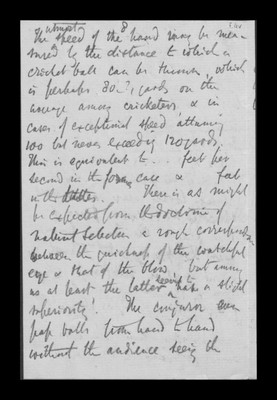 utmost
The speed of the hand may be mea-
sured by the distance to which a
cricket ball can be thrown, which
is perhaps 80 ?, yards on the
average among cricketers & in
cases of exceptional speed attaining
100 but never exceeding 120 yards.
This is equivalent to .. feet per
second in the case & feet
in the latter. There is as might
be expected from the doctrine of
natural selection a rough correspondence
between the quickness of the watchful
eye & that of the blow, but among
us at least the latter seems to have a slight
superiority. The conjuror can
pass balls from hand to hand
without the audience seeing the